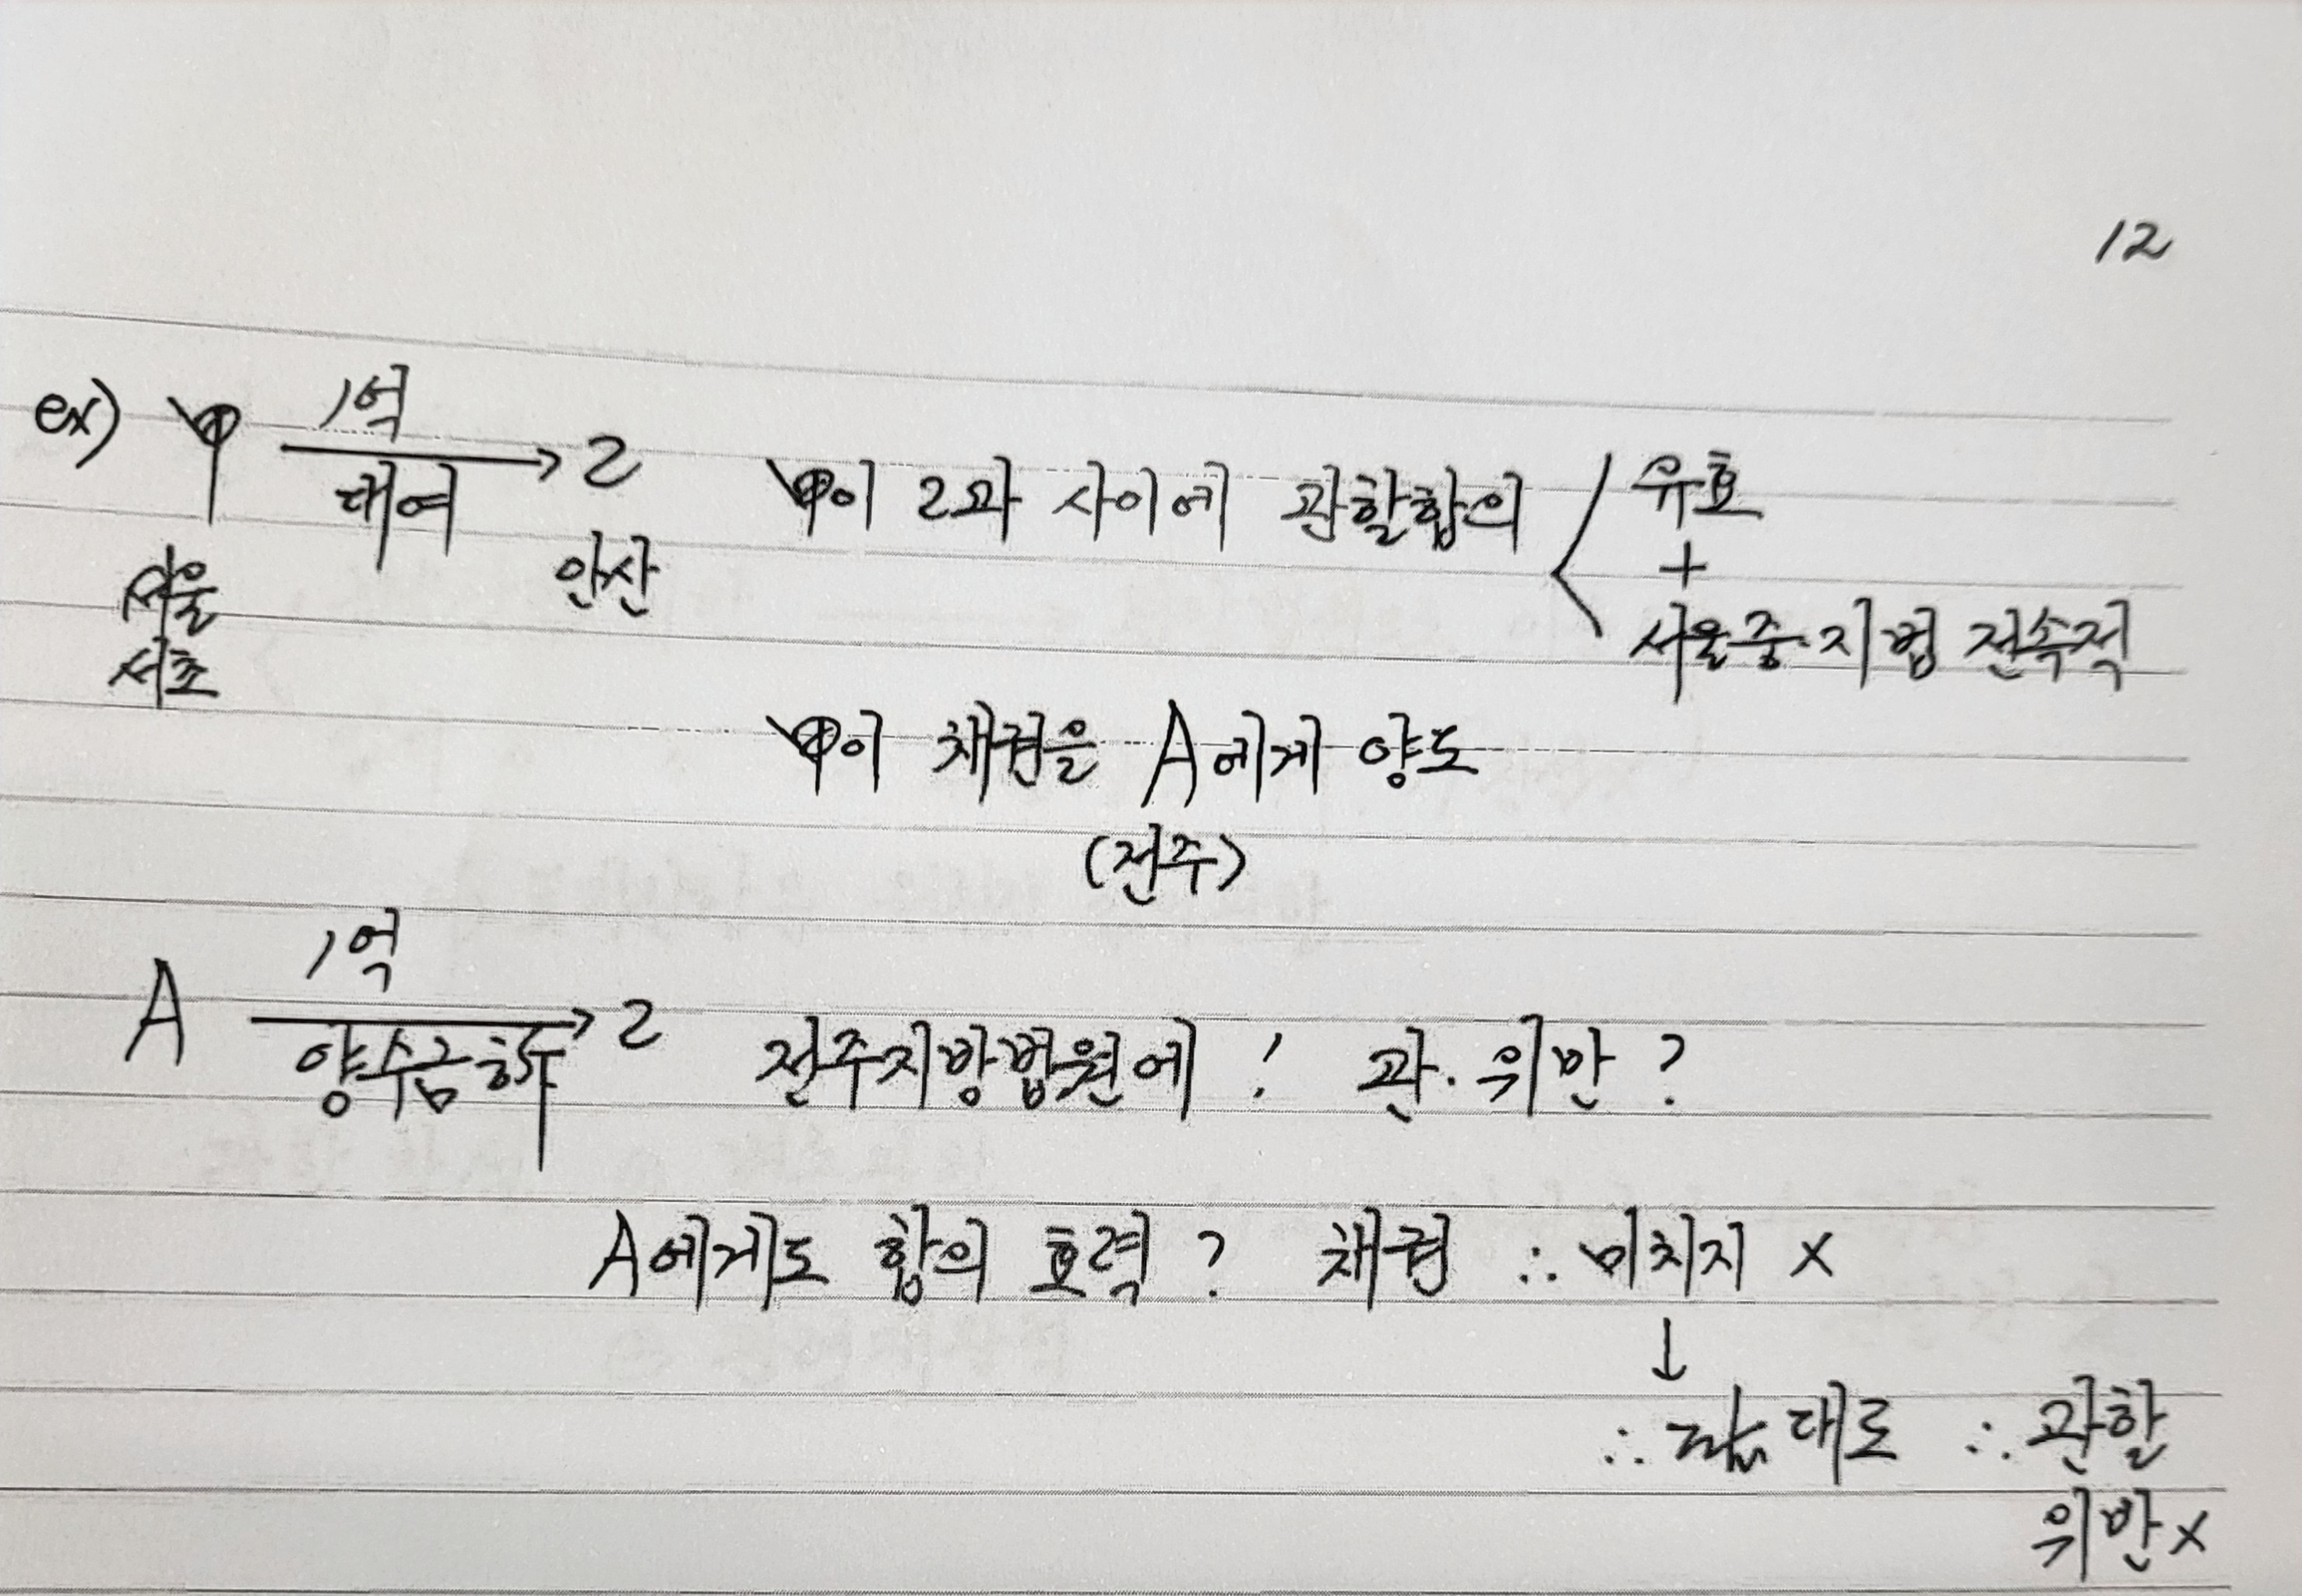 12
ex) 甲 1억 대여 → 乙 甲이 乙과 사이에 관할합의 < 유효
+
서울 서초 안산 서울중·지법 전속적
甲이 채권을 A에게 양도
(전주)
A 1억 양수금청구 → 乙 전주지방법원에! 관·위반?
A에게도 합의 효력? 채권 ∴ 미치지 X
↓
∴ 대로 ∴ 관할
위반X